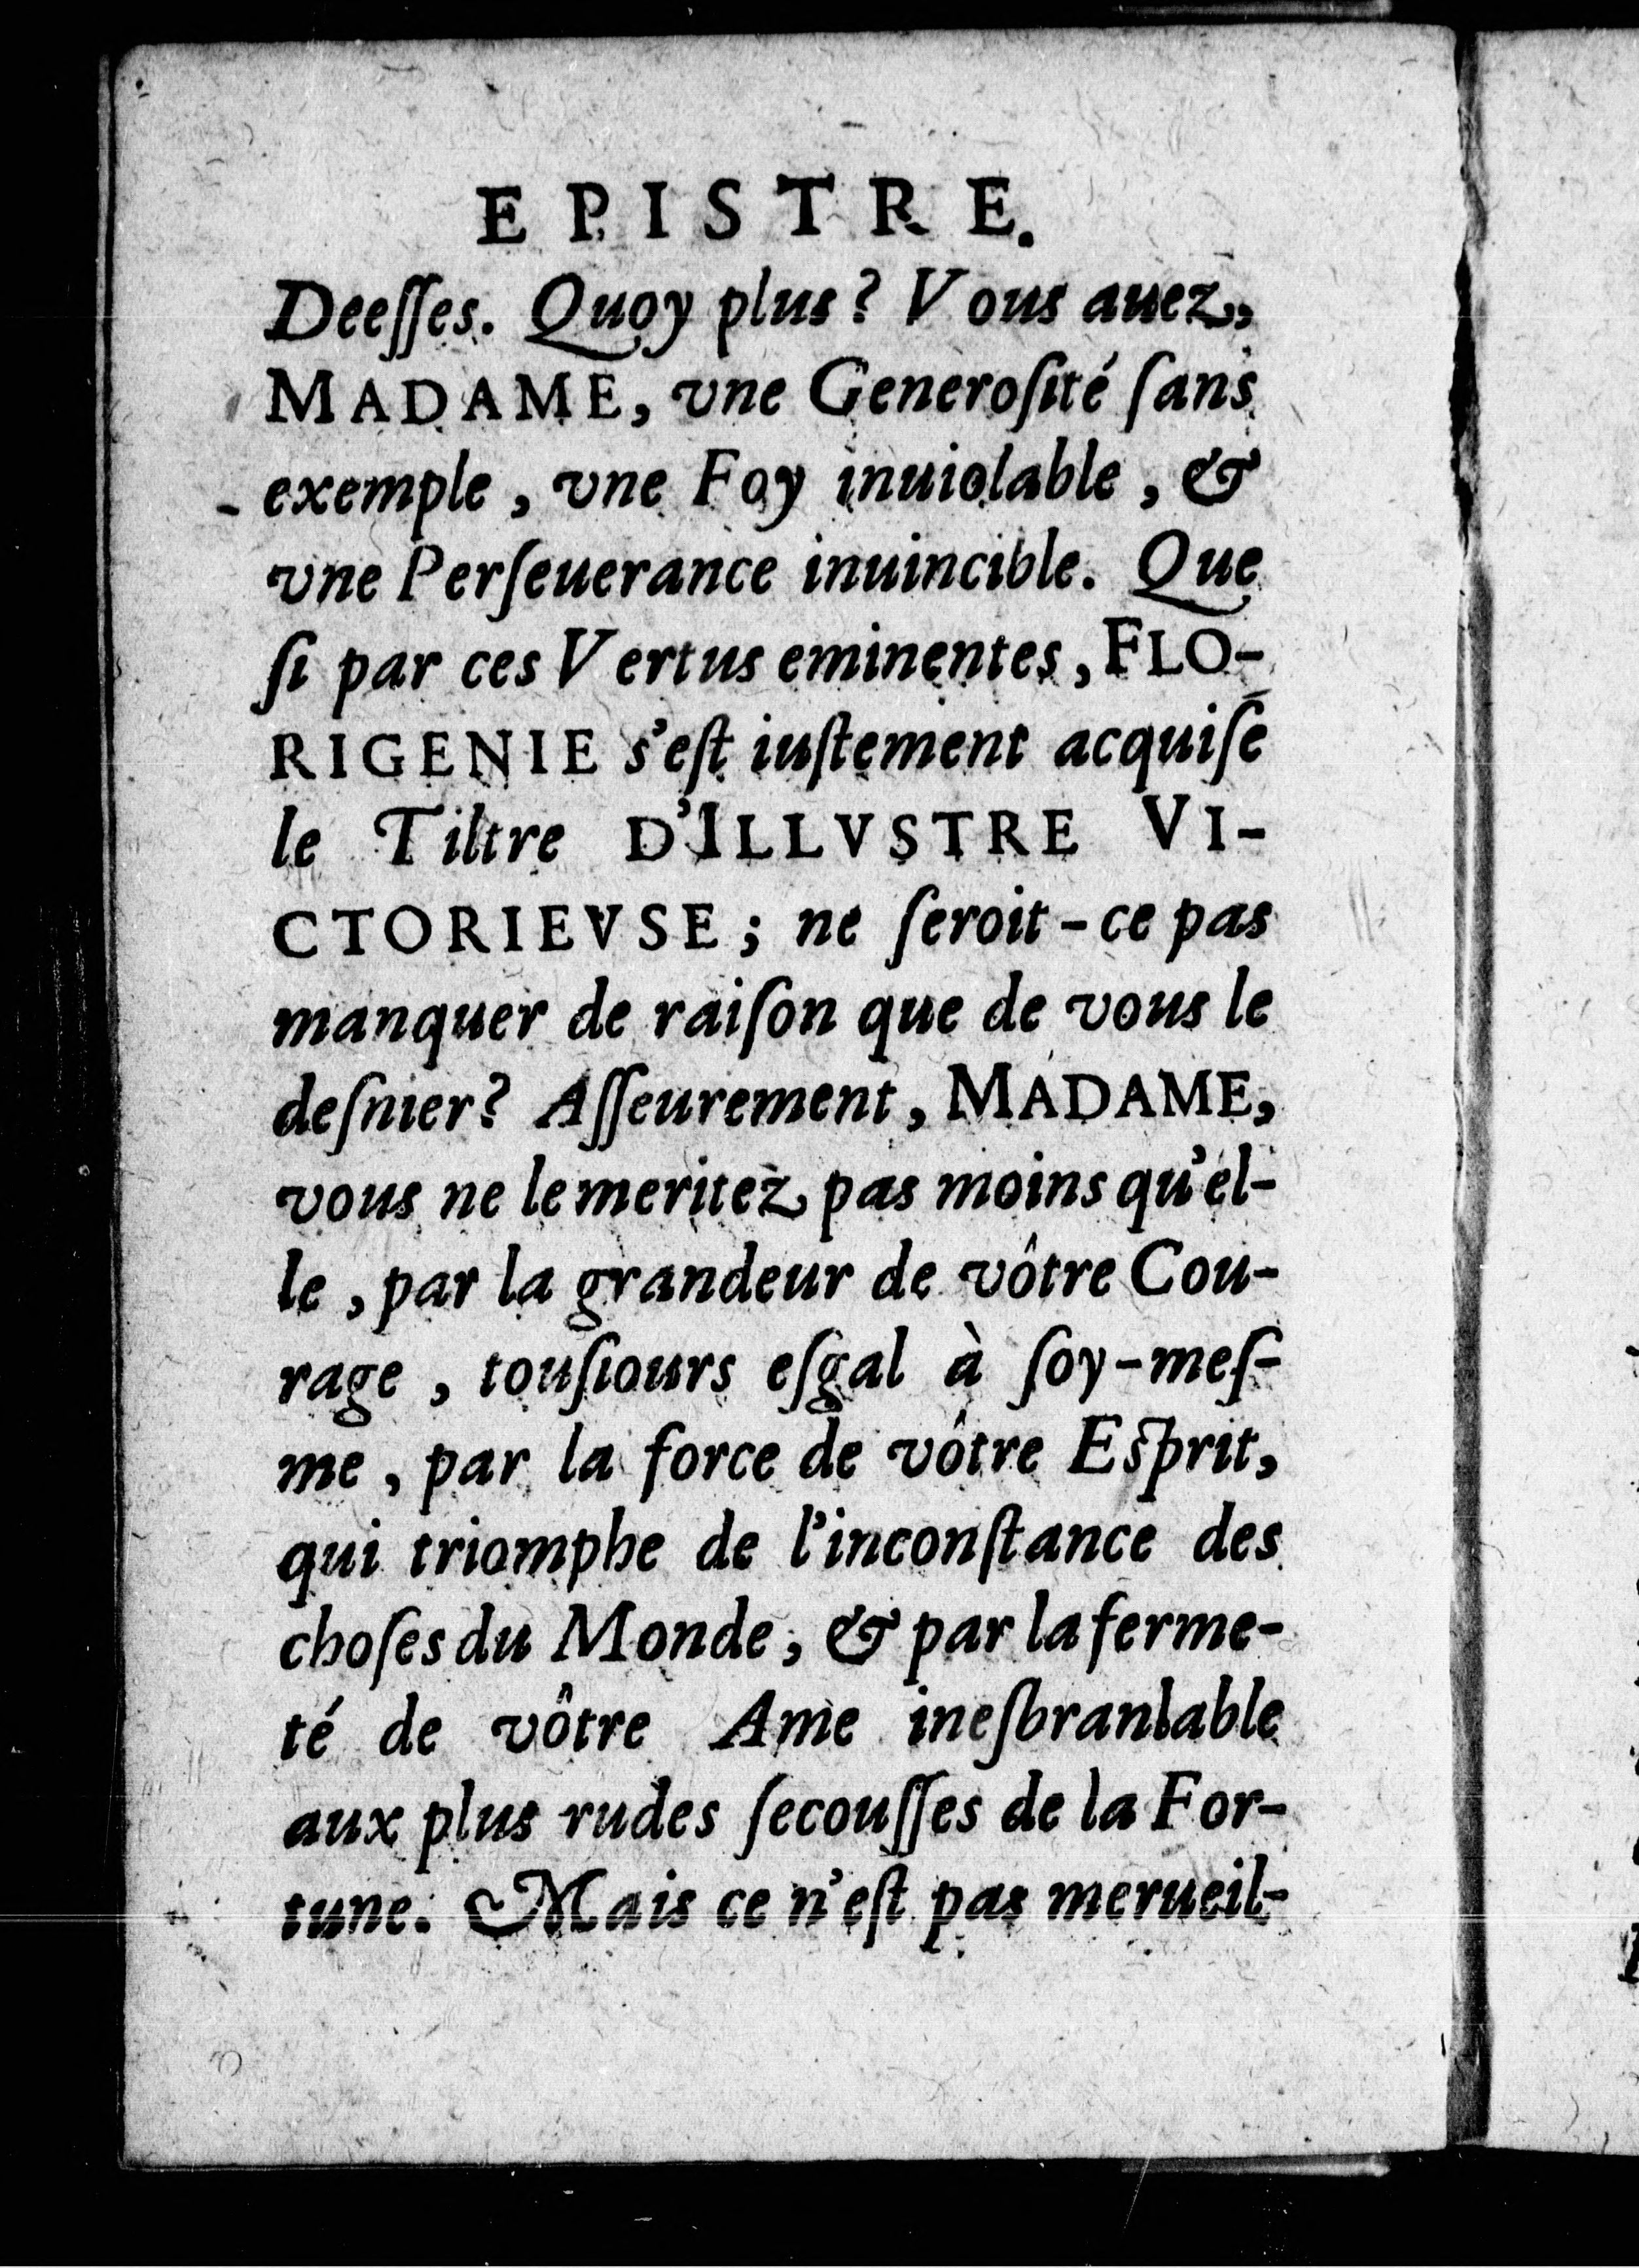 EPISTRE.
Deeſſes. Quoy plus? Vous auez,
MADAME, vne Generoſité ſans
exemple, vne Foy inuiolable, &
vne Perſeuerance inuincible. Que
ſi par ces Vertus eminentes, FLO-
RIGENIE s'eſt iuſtement acquiſe
le Tiltre D'ILLVSTRE VI-
CTORIEVSE; ne ſeroit-ce pas
manquer de raiſon que de vous le
deſnier? Aſſeurement, MADAME,
vous ne le meritez pas moins qu'el-
le, par la grandeur de vôtre Cou-
rage, touſiours eſgal à ſoy-meſ-
me, par la force de vôtre Eſprit,
qui triomphe de l'inconſtance des
choſes du Monde, & par la ferme-
té de vôtre Ame ineſbranlable
aux plus rudes ſecouſſes de la For-
tune. Mais ce n'eſt pas merueil-